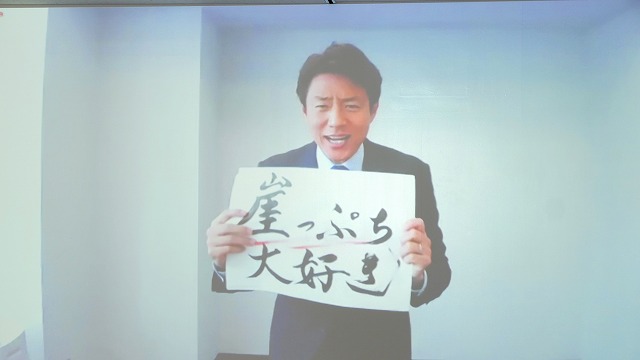 崖っぷち
大好き